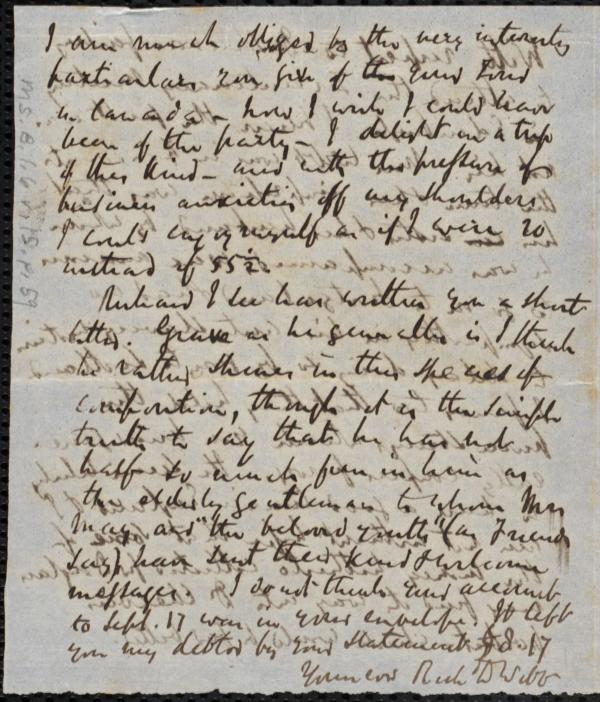 I am much obliged by the very interesting
particulars you give of the your
in Canada - how I wish I could have
been of the party - I delight in a trip
of this kind - and with the pressure of
business anxieties off my shoulders
I could enjoy myself as if I were 20
instead of 55½.
Richard I see has written you a short
letter. Grave as he generally is I think
he rather shines in this species of
composition, though it is the simple
truth to say that he has not
half so much fun in him as
the elderly gentleman to whom Mrs
May and "the beloved youth" (as Friends
say) have sent their kind & welcome
messages. I do not think your account
to Sept. 17 was in your envelope. It left
you my debtor by your statement 8.17
Yours ever Rich D Webb